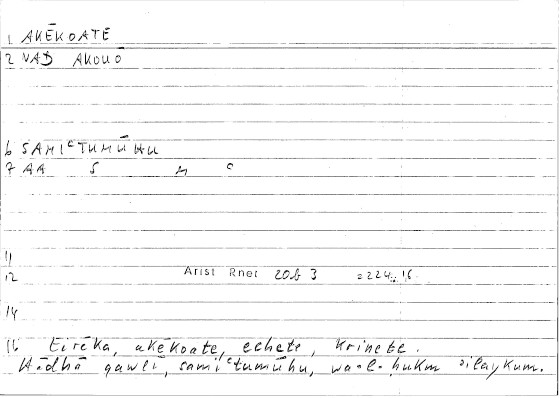 1 AKĒKOATE
2 VAD AKOUO
6 SAMIᶜTUMŪHU
7 AA S M ᶜ
11
12 Arist Rhet 20b 3 = 224, 16
14
16 Eirēka, akēkoate, echete, krinete.
Hādhā qawlī, samiᶜtumūhu, wa-l-ḥukm ʾilaykum.